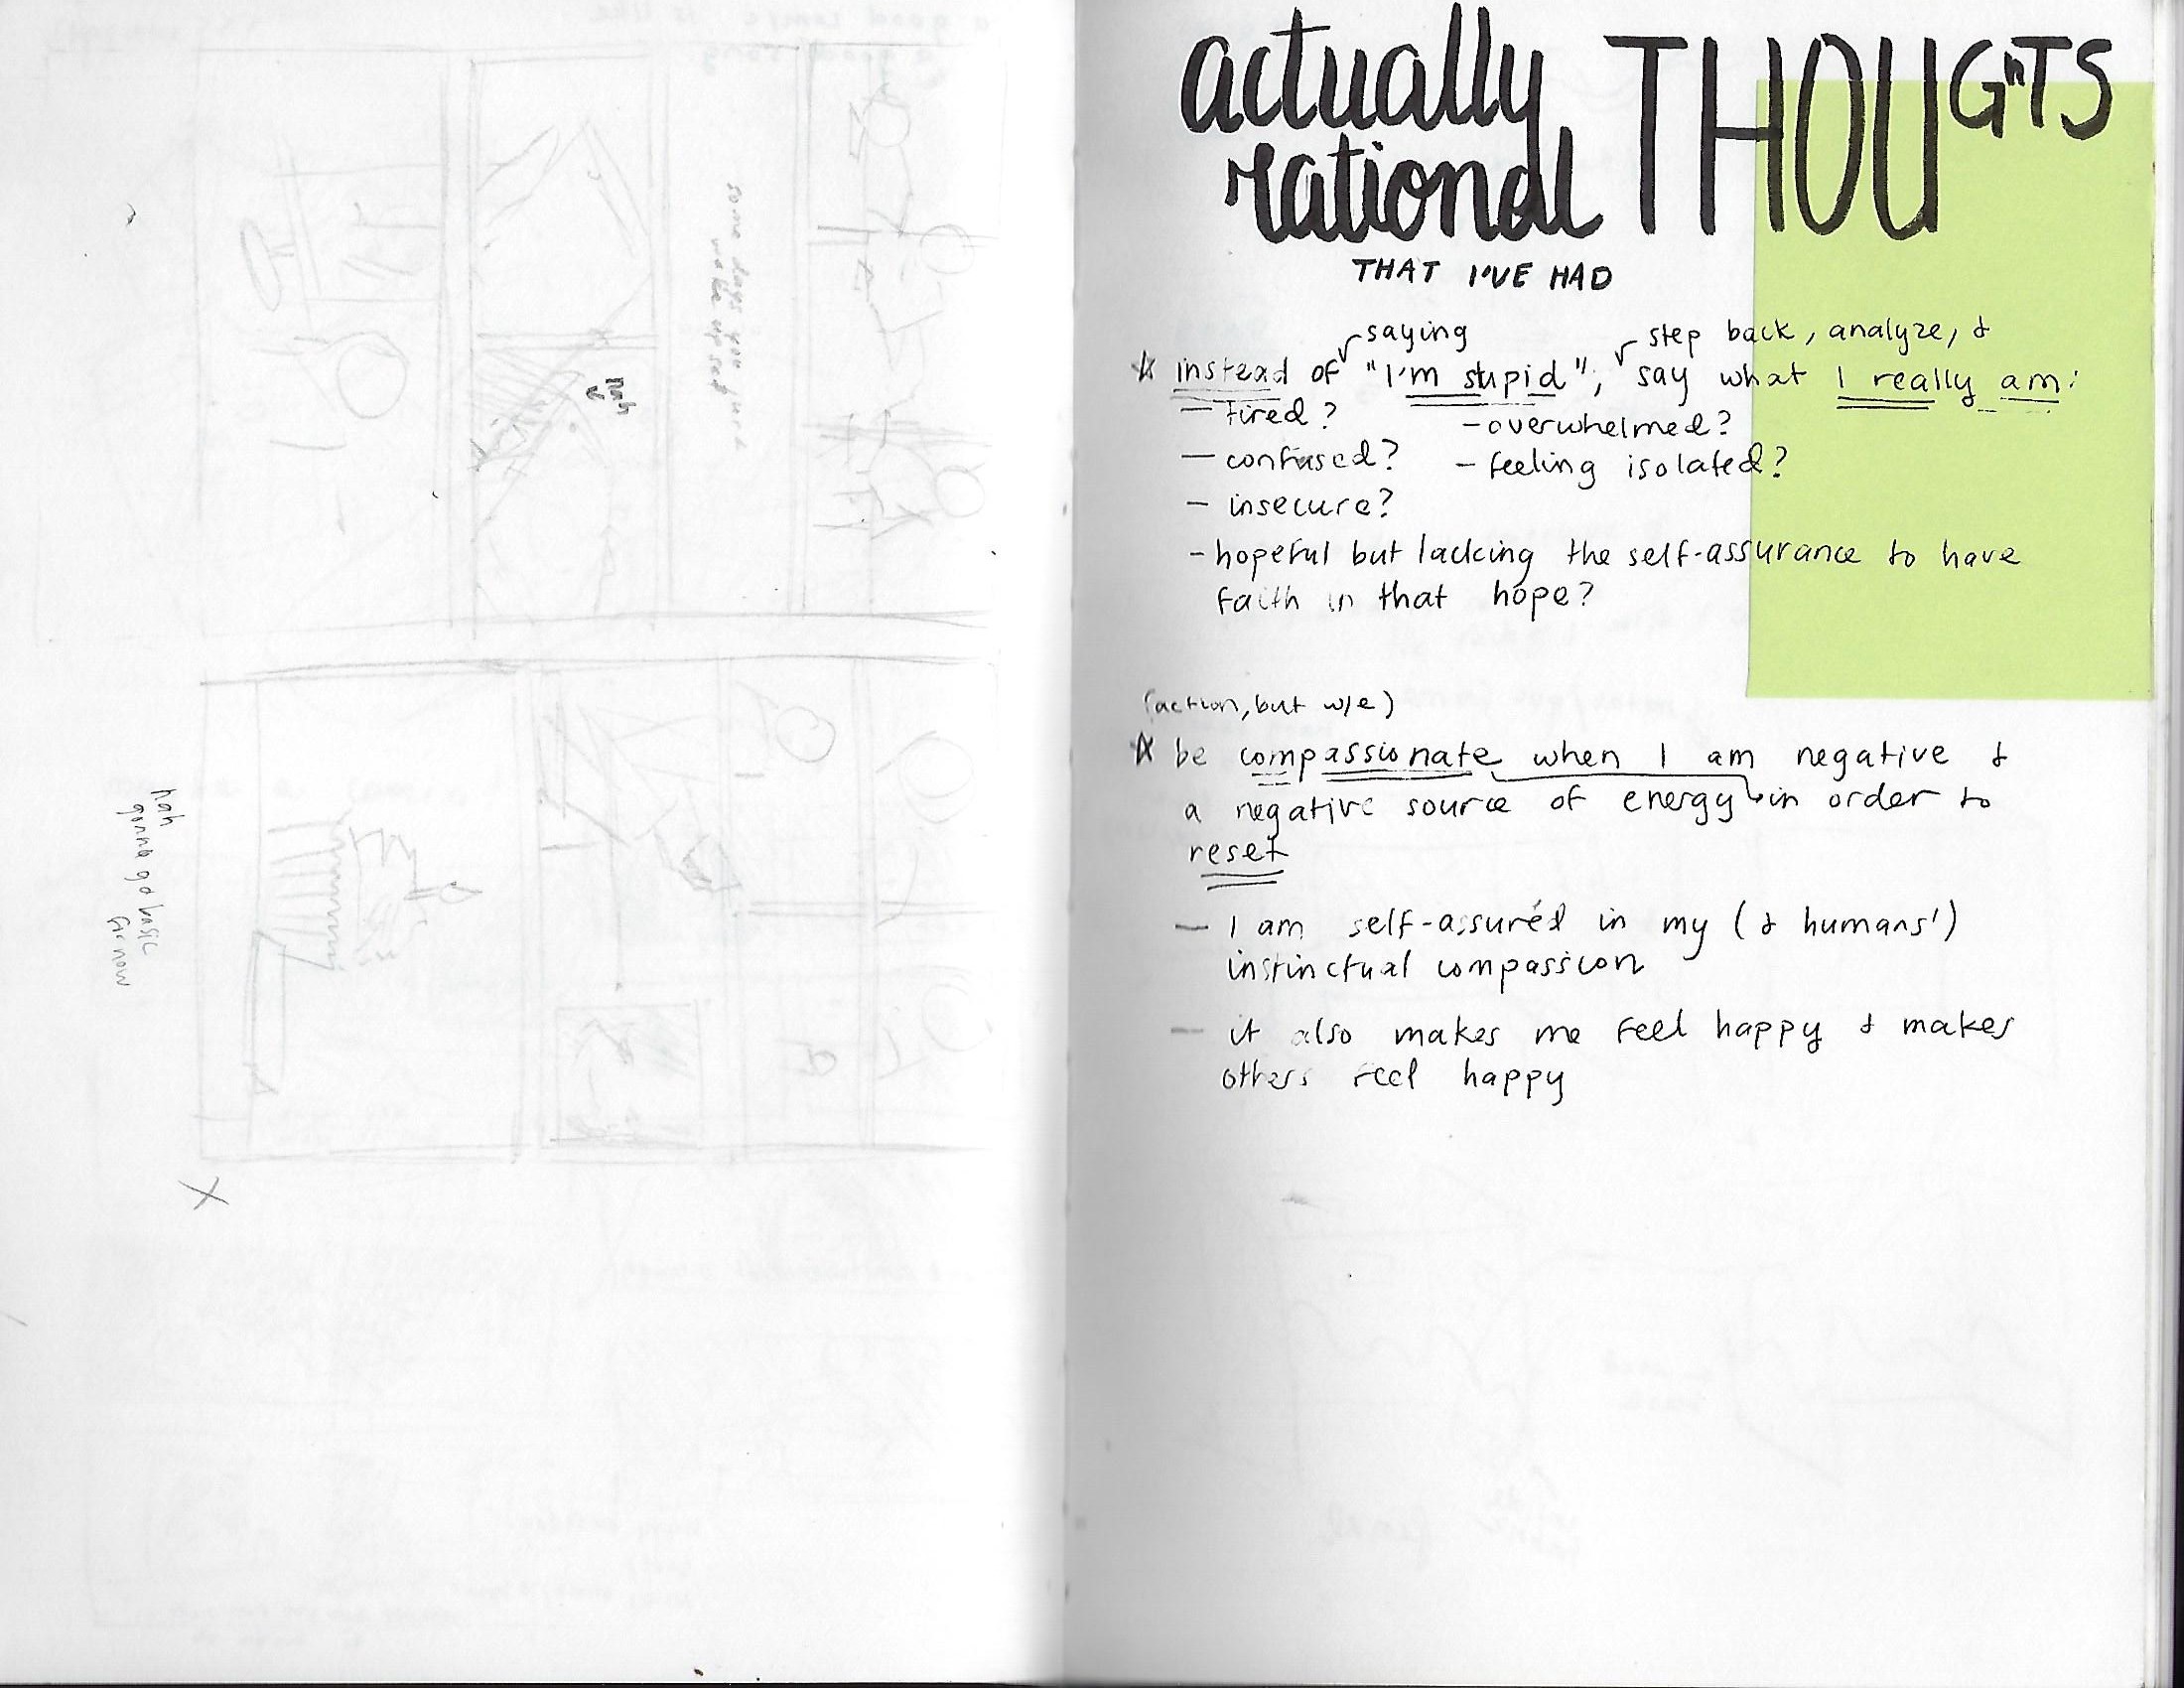 some days you just
wake up sad
nah
nah
gonna go basic
for now
X
actually
rational THOUGHTS
THAT I'VE HAD
saying
step back, analyze, &
instead of "I'm stupid", say what I really am:
- tired?
- overwhelmed?
- confused?
- feeling isolated?
- insecure?
- hopeful but lacking the self-assurance to have
faith in that hope?
(action, but w/e)
be compassionate when I am negative &
a negative source of energy in order to
reset
- I am self-assured in my (& humans')
instinctual compassion
- it also makes me feel happy & makes
others feel happy